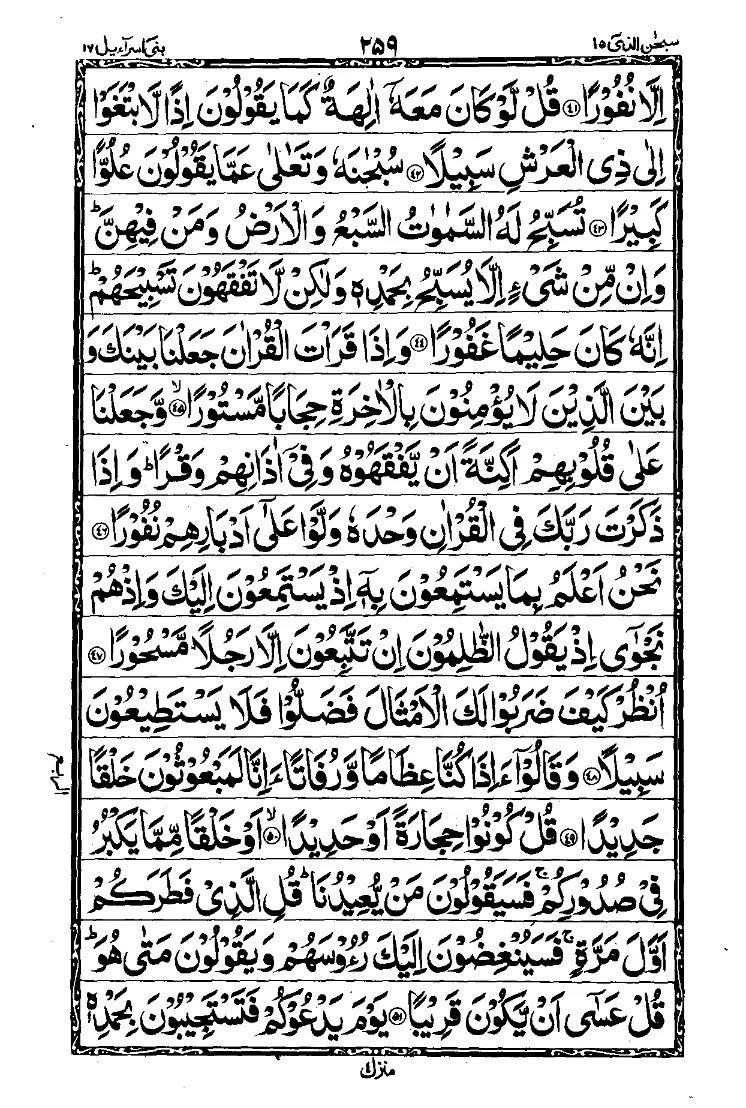 سبحٰن الذی ۱۵
۲۵۹
بنی اسرآءیل ۱۷
اِلَّا نُفُوْرًا ﴿۴۱﴾ قُلْ لَّوْ كَانَ مَعَهٗۤ اٰلِهَةٌ كَمَا يَقُوْلُوْنَ اِذًا لَّابْتَغَوْا
اِلٰى ذِى الْعَرْشِ سَبِيْلًا ﴿۴۲﴾ سُبْحٰنَهٗ وَتَعٰلٰى عَمَّا يَقُوْلُوْنَ عُلُوًّا
كَبِيْرًا ﴿۴۳﴾ تُسَبِّحُ لَهُ السَّمٰوٰتُ السَّبْعُ وَالْاَرْضُ وَمَنْ فِيْهِنَّ ؕ
وَاِنْ مِّنْ شَىْءٍ اِلَّا يُسَبِّحُ بِحَمْدِهٖ وَلٰكِنْ لَّا تَفْقَهُوْنَ تَسْبِيْحَهُمْ ؕ
اِنَّهٗ كَانَ حَلِيْمًا غَفُوْرًا ﴿۴۴﴾ وَاِذَا قَرَاْتَ الْقُرْاٰنَ جَعَلْنَا بَيْنَكَ وَ
بَيْنَ الَّذِيْنَ لَا يُؤْمِنُوْنَ بِالْاٰخِرَةِ حِجَابًا مَّسْتُوْرًا ﴿۴۵﴾ ۙ وَّجَعَلْنَا
عَلٰى قُلُوْبِهِمْ اَكِنَّةً اَنْ يَّفْقَهُوْهُ وَفِىْۤ اٰذَانِهِمْ وَقْرًا ؕ وَاِذَا
ذَكَرْتَ رَبَّكَ فِى الْقُرْاٰنِ وَحْدَهٗ وَلَّوْا عَلٰۤى اَدْبَارِهِمْ نُفُوْرًا ﴿۴۶﴾
نَحْنُ اَعْلَمُ بِمَا يَسْتَمِعُوْنَ بِهٖۤ اِذْ يَسْتَمِعُوْنَ اِلَيْكَ وَاِذْ هُمْ
نَجْوٰۤى اِذْ يَقُوْلُ الظّٰلِمُوْنَ اِنْ تَتَّبِعُوْنَ اِلَّا رَجُلًا مَّسْحُوْرًا ﴿۴۷﴾
اُنْظُرْ كَيْفَ ضَرَبُوْا لَكَ الْاَمْثَالَ فَضَلُّوْا فَلَا يَسْتَطِيْعُوْنَ
سَبِيْلًا ﴿۴۸﴾ وَقَالُوْۤا ءَاِذَا كُنَّا عِظَامًا وَّرُفَاتًا ءَاِنَّا لَمَبْعُوْثُوْنَ خَلْقًا
جَدِيْدًا ﴿۴۹﴾ قُلْ كُوْنُوْا حِجَارَةً اَوْ حَدِيْدًا ﴿۵۰﴾ ۙ اَوْ خَلْقًا مِّمَّا يَكْبُرُ
فِىْ صُدُوْرِكُمْ ۚ فَسَيَقُوْلُوْنَ مَنْ يُّعِيْدُنَا ؕ قُلِ الَّذِىْ فَطَرَكُمْ
اَوَّلَ مَرَّةٍ ۚ فَسَيُنْغِضُوْنَ اِلَيْكَ رُءُوْسَهُمْ وَيَقُوْلُوْنَ مَتٰى هُوَ ؕ
قُلْ عَسٰۤى اَنْ يَّكُوْنَ قَرِيْبًا ﴿۵۱﴾ يَوْمَ يَدْعُوْكُمْ فَتَسْتَجِيْبُوْنَ بِحَمْدِهٖ